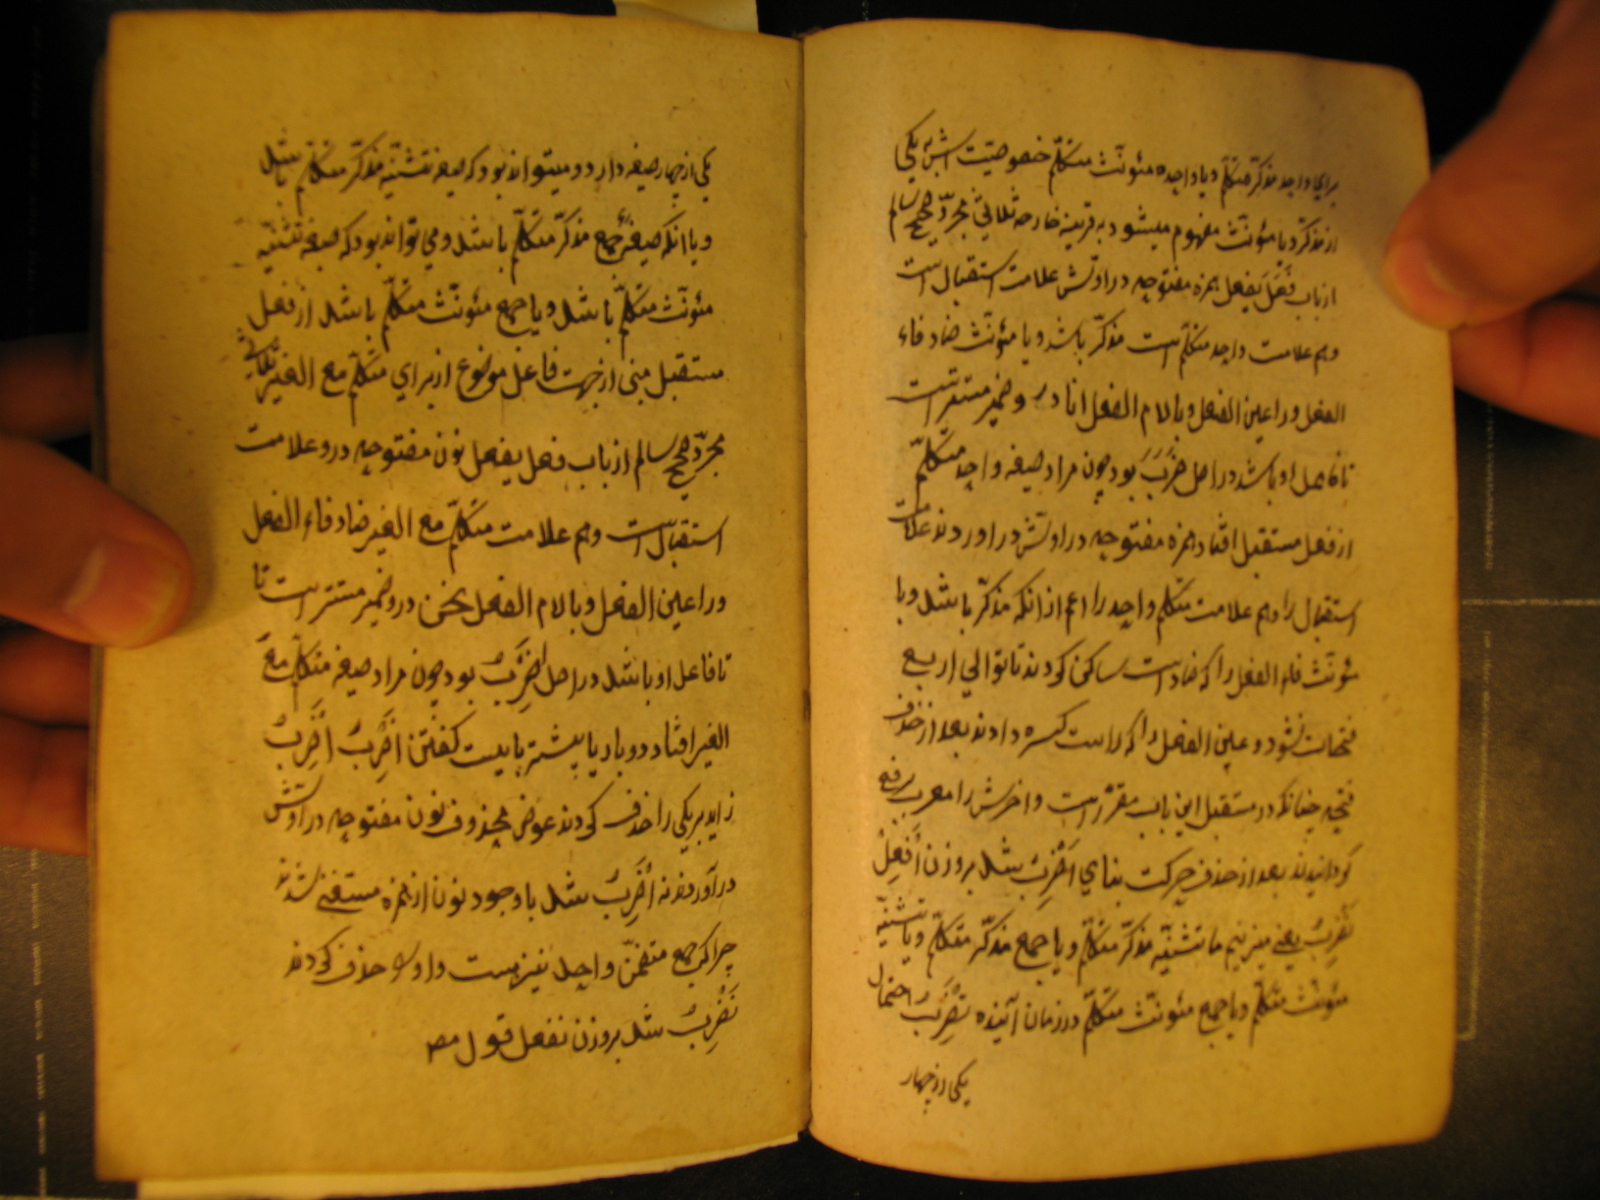 برای واحد مذکر متکلم و یا واحده مئونث متکلم خصوصیت اش به یکی
از مذکر و یا مئونث مفهوم میشود به قرینه خارجه ثلاثی مجرد صحیح سالم
از باب فَعَلَ یفعل همزه مفتوحه در اولش علامت استقبال است
و هم علامت واحد متکلم است مذکر باشد و یا مئونث ضاد فاء
الفعل و را عین الفعل و با لام الفعل انا در و ضمیر مستتر است
تا فاعل او باشد در اصل ضَرَبَ بود چون مراد صیغه واحد متکلم
از فعل مستقبل افتاد همزه مفتوحه در اولش در اوردند علامت
استقبال را و هم علامت متکلم واحد را اعم از انکه مذکر باشد و یا
مئونث فاء الفعل را که ضاد است ساکن کردند تا توالی اربع
فتحات نشود و عین الفعل را که را است کسره دادند بعد از حذف
فتحه چنانکه در مستقبل این باب مقرر است و اخرش را معرب برفع
کردانیدند بعد از حذف حرکت بنای اَضْرِبُ شد بر وزن اَفْعِلُ
نَضْرِبُ یعنی میزنیم ما تثنیه مذکر متکلم و یا جمع مذکر متکلم و یا تثنیه
مئونث متکلم و یا جمع مئونث متکلم در زمان آئینده نَضْرِبُ احتمال
یکی از چهار
یکی از چهار صیغه دارد و میتواند بود که صیغه تثنیه مذکر متکلم باشد
و یا انکه صیغهٔ جمع مذکر متکلم باشد و می تواند بود که صیغه تثنیه
مئونث متکلم باشد و یا جمع مئونث متکلم باشد از فعل
مستقبل مبنی از جهت فاعل موضوع از برای متکلم مع الغیر ثلاثی
مجرد صحیح سالم از باب فعل یفعل نون مفتوحه در و علامت
استقبال است و هم علامت متکلم مع الغیر ضاد فاء الفعل
و را عین الفعل و با لام الفعل نحن در و ضمیر مستتر است تا
تا فاعل او باشد در اصل اَضْرِبُ بود چون مراد صیغه متکلم مع
الغیر افتاد دو بار یا بیشتر بایست کفتن اَضْرِبُ اَضْرِبُ
زاید بر یکی را حذف کردند عوض محذوف نون مفتوحه در اولش
در آوردند نَه اَضْرِبُ شد با وجود نون از همزه مستغنی شدند
چرا که جمع متضمن واحد نیز هست و او را حذف کردند
نَضْرِبُ شد بر وزن نفعل قول مص